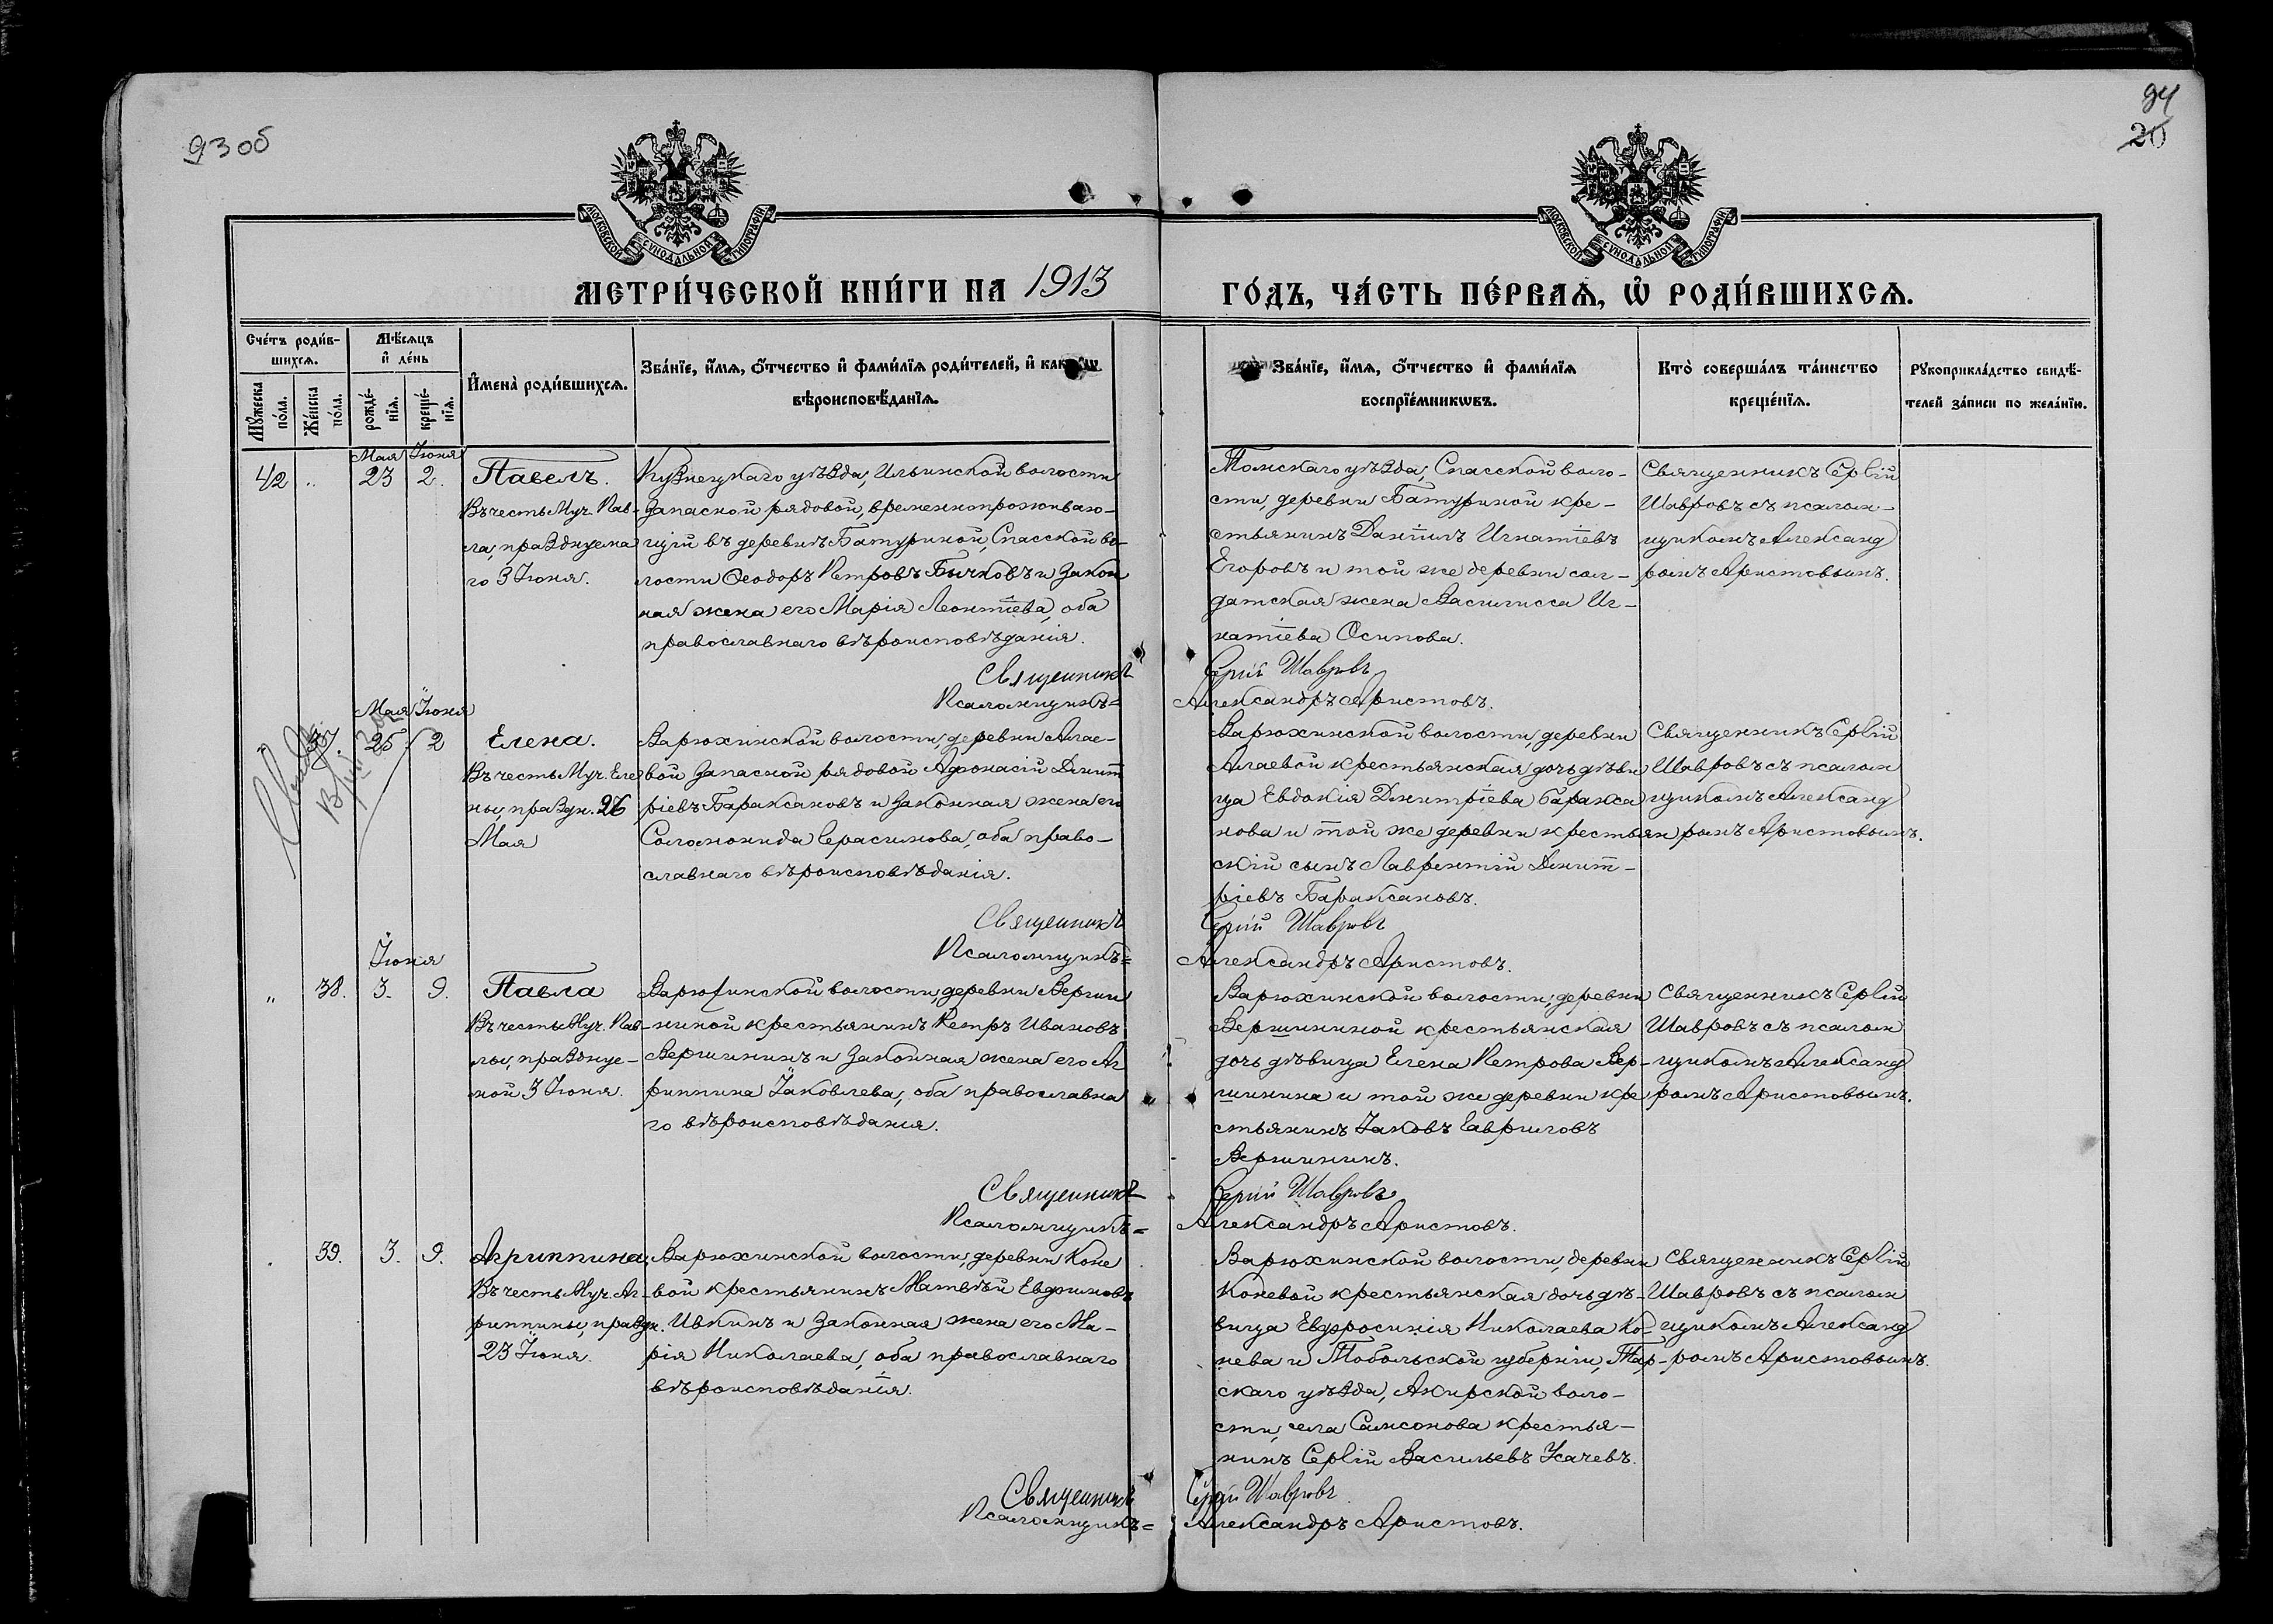 93 об
94
20
МОСКОВСКОЙ СѴНОДАЛЬНОЙ ТИПОГРАФІИ
МОСКОВСКОЙ СѴНОДАЛЬНОЙ ТИПОГРАФІИ
МЕТРИ́ЧЕСКОЙ КНИ́ГИ НА 1913
ГО́ДЪ, ЧА́СТЬ ПЕ́РВАѦ, Ѡ҆ РОДИ́ВШИХСѦ.
Сче́тъ роди́в-
шихсѧ.
Мꙋжеска по́ла.
Же́нска по́ла.
Мѣ́сѧцъ
и҆ де́нь
рожде́-
нїѧ.
креще́-
нїѧ.
И҆мена̀ роди́вшихсѧ.
Зва́нїе, и҆́мѧ, ѻ҆́тчество и҆ фами́лїѧ роди́телей, и҆
вѣроисповѣ́данїѧ.
Зва́нїе, и҆́мѧ, ѻ҆́тчество и҆ фами́лїѧ
воспрїе́мникѡвъ.
Кто̀ соверша́лъ та́инство
креще́нїѧ.
Рꙋкоприкла́дство свидѣ́-
телей за́писи по жела́нїю.
Мая Іюня
42 " 23 2.
Павелъ.
Въ честь Муч. Пав-
ла, празднуема
го 3 Іюня.
Кузнецкаго уѣзда, Ильинской волости
запасной рядовой, временнопроживаю-
щій въ деревнѣ Батуриной, Спасской во-
лости Ѳеодоръ Петровъ Бычковъ и закон
ная жена его Марія Леонтіева, оба
православнаго вѣроисповѣданія.
Томскаго уѣзда, Спасской воло-
сти, деревни Батуриной кре-
стьянинъ Даніилъ Игнатіевъ
Егоровъ и той же деревни сол-
датская жена Василисса Иг-
натіева Осипова.
Священникъ Сергій
Шавровъ съ псалом-
щикомъ Александ
ромъ Аристовымъ.
Священникъ Сергій Шавровъ
Псаломщикъ= Александръ Аристовъ.
Мая Іюня
37. 25 2
Елена.
Въ честь Муч. Еле
ны, праздн. 26
Мая
Варюхинской волости, деревни Алае-
вой запасной рядовой Афонасій Димит
ріевъ Бараксановъ и законная жена его
Соломонида Герасимова, оба право-
славнаго вѣроисповѣданія.
Варюхинской волости, деревни
Алаевой крестьянская дочь дѣви
ца Евдокія Димитріева Баракса
нова и той же деревни крестьян
скій сынъ Лаврентій Димит-
ріевъ Бараксановъ.
Священникъ Сергій
Шавровъ съ псалом
щикомъ Александ
ромъ Аристовымъ.
Священникъ Сергій Шавровъ
Псаломщикъ= Александръ Аристовъ.
Іюня
" 38. 3. 9.
Павла
Въ честь Муч. Пав-
лы, празднуе-
мой 3 Іюня.
Варюхинской волости, деревни Верши
ниной крестьянинъ Петръ Ивановъ
Вершининъ и законная жена его Аг
риппина Іаковлева, оба православна
го вѣроисповѣдания.
Варюхинской волости, деревни
Вершининой крестьянская
дочь дѣвица Елена Петрова Вер-
шинина и той же деревни кре
стьянинъ Іаковъ Гавриловъ
Вершининъ.
Священникъ Сергій
Шавровъ съ псалом
щикомъ Александ
ромъ Аристовымъ.
Священникъ Сергій Шавровъ
Псаломщикъ= Александръ Аристовъ.
39. 3. 9.
Агриппина
Въ честь Муч. Аг-
риппины, праздн.
23 Іюня.
Варюхинской волости, деревни Коне
вой крестьянинъ Матвѣй Евдокимовъ
Ивкинъ и законная жена его Ма-
рія Николаева, оба православнаго
вѣроисповѣданія.
Варюхинской волости, деревни
Коневой крестьянская дочь дѣ-
вица Евфросинія Николаева Ко-
нева и Тобольской губерніи, Тар-
скаго уѣзда, Аиирской воло-
сти, села Самсонова крестья-
нинъ Сергій Васильевъ Усачевъ.
Священникъ Сергій
Шавровъ съ псалом
щикомъ Александ
ромъ Аристовымъ.
Священникъ Сергій Шавровъ
Псаломщикъ= Александръ Аристовъ.